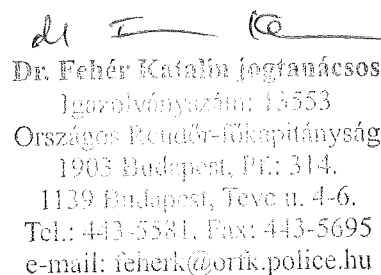 Dr. Fehér Katalin jogtanácsos
Igazolványszám: 13553
Országos Rendőr-főkapitányság
1903 Budapest, Pf.: 314.
1139 Budapest, Teve u. 4-6.
Tel.: 443-5581. Fax: 443-5695
e-mail: feherk@orfk.police.hu